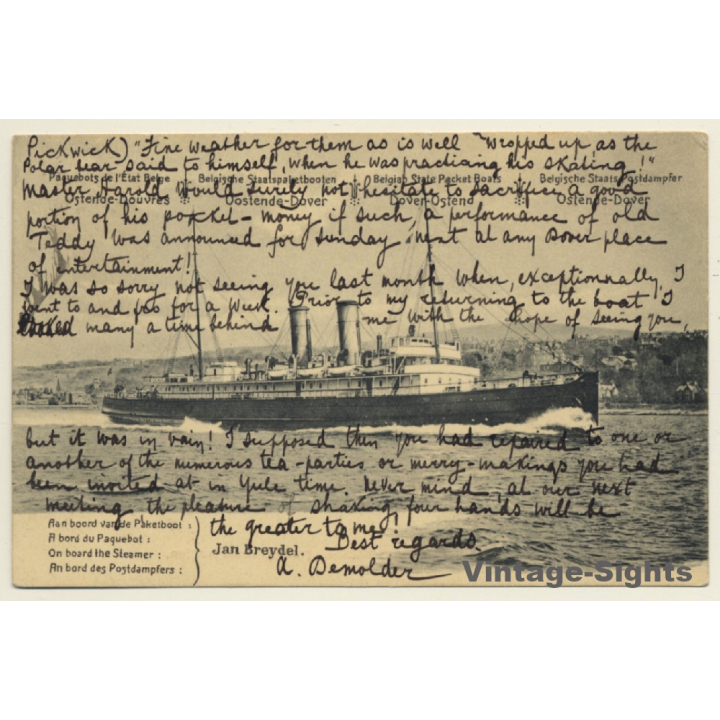 Pickwick) "Fine weather for them as is well "wropped up as the
Polar bear said to himself, when he was practising his skating!"
Paquebots de l'Etat Belge Belgische Staatspaketbooten Belgian State Packet Boats Belgische Staats Postdampfer
Master Harold would surely not hesitate to sacrifice a good
Ostende-Douvres Oostende-Dover Dover-Ostend Ostende-Dover
portion of his pocket-money if such a performance of old
Teddy was announced for Sunday next at any Dover place
of entertainment!
I was so sorry not seeing you last month when, exceptionnally, I
went to and fro for a week. Prior to my returning to the boat I
looked many a time behind me with the hope of seeing you,
but it was in vain! I supposed then you had repaired to one or
another of the numerous tea-parties or merry-makings you had
been invited at in Yule time. Never mind, at our next
meeting the pleasure of shaking four hands will be
the greater to me!
Best regards.
A. Demolder
Aan boord van de Paketboot :
A bord du Paquebot :
On board the Steamer :
An bord des Postdampfers :
Jan Breydel.
Vintage-Sights